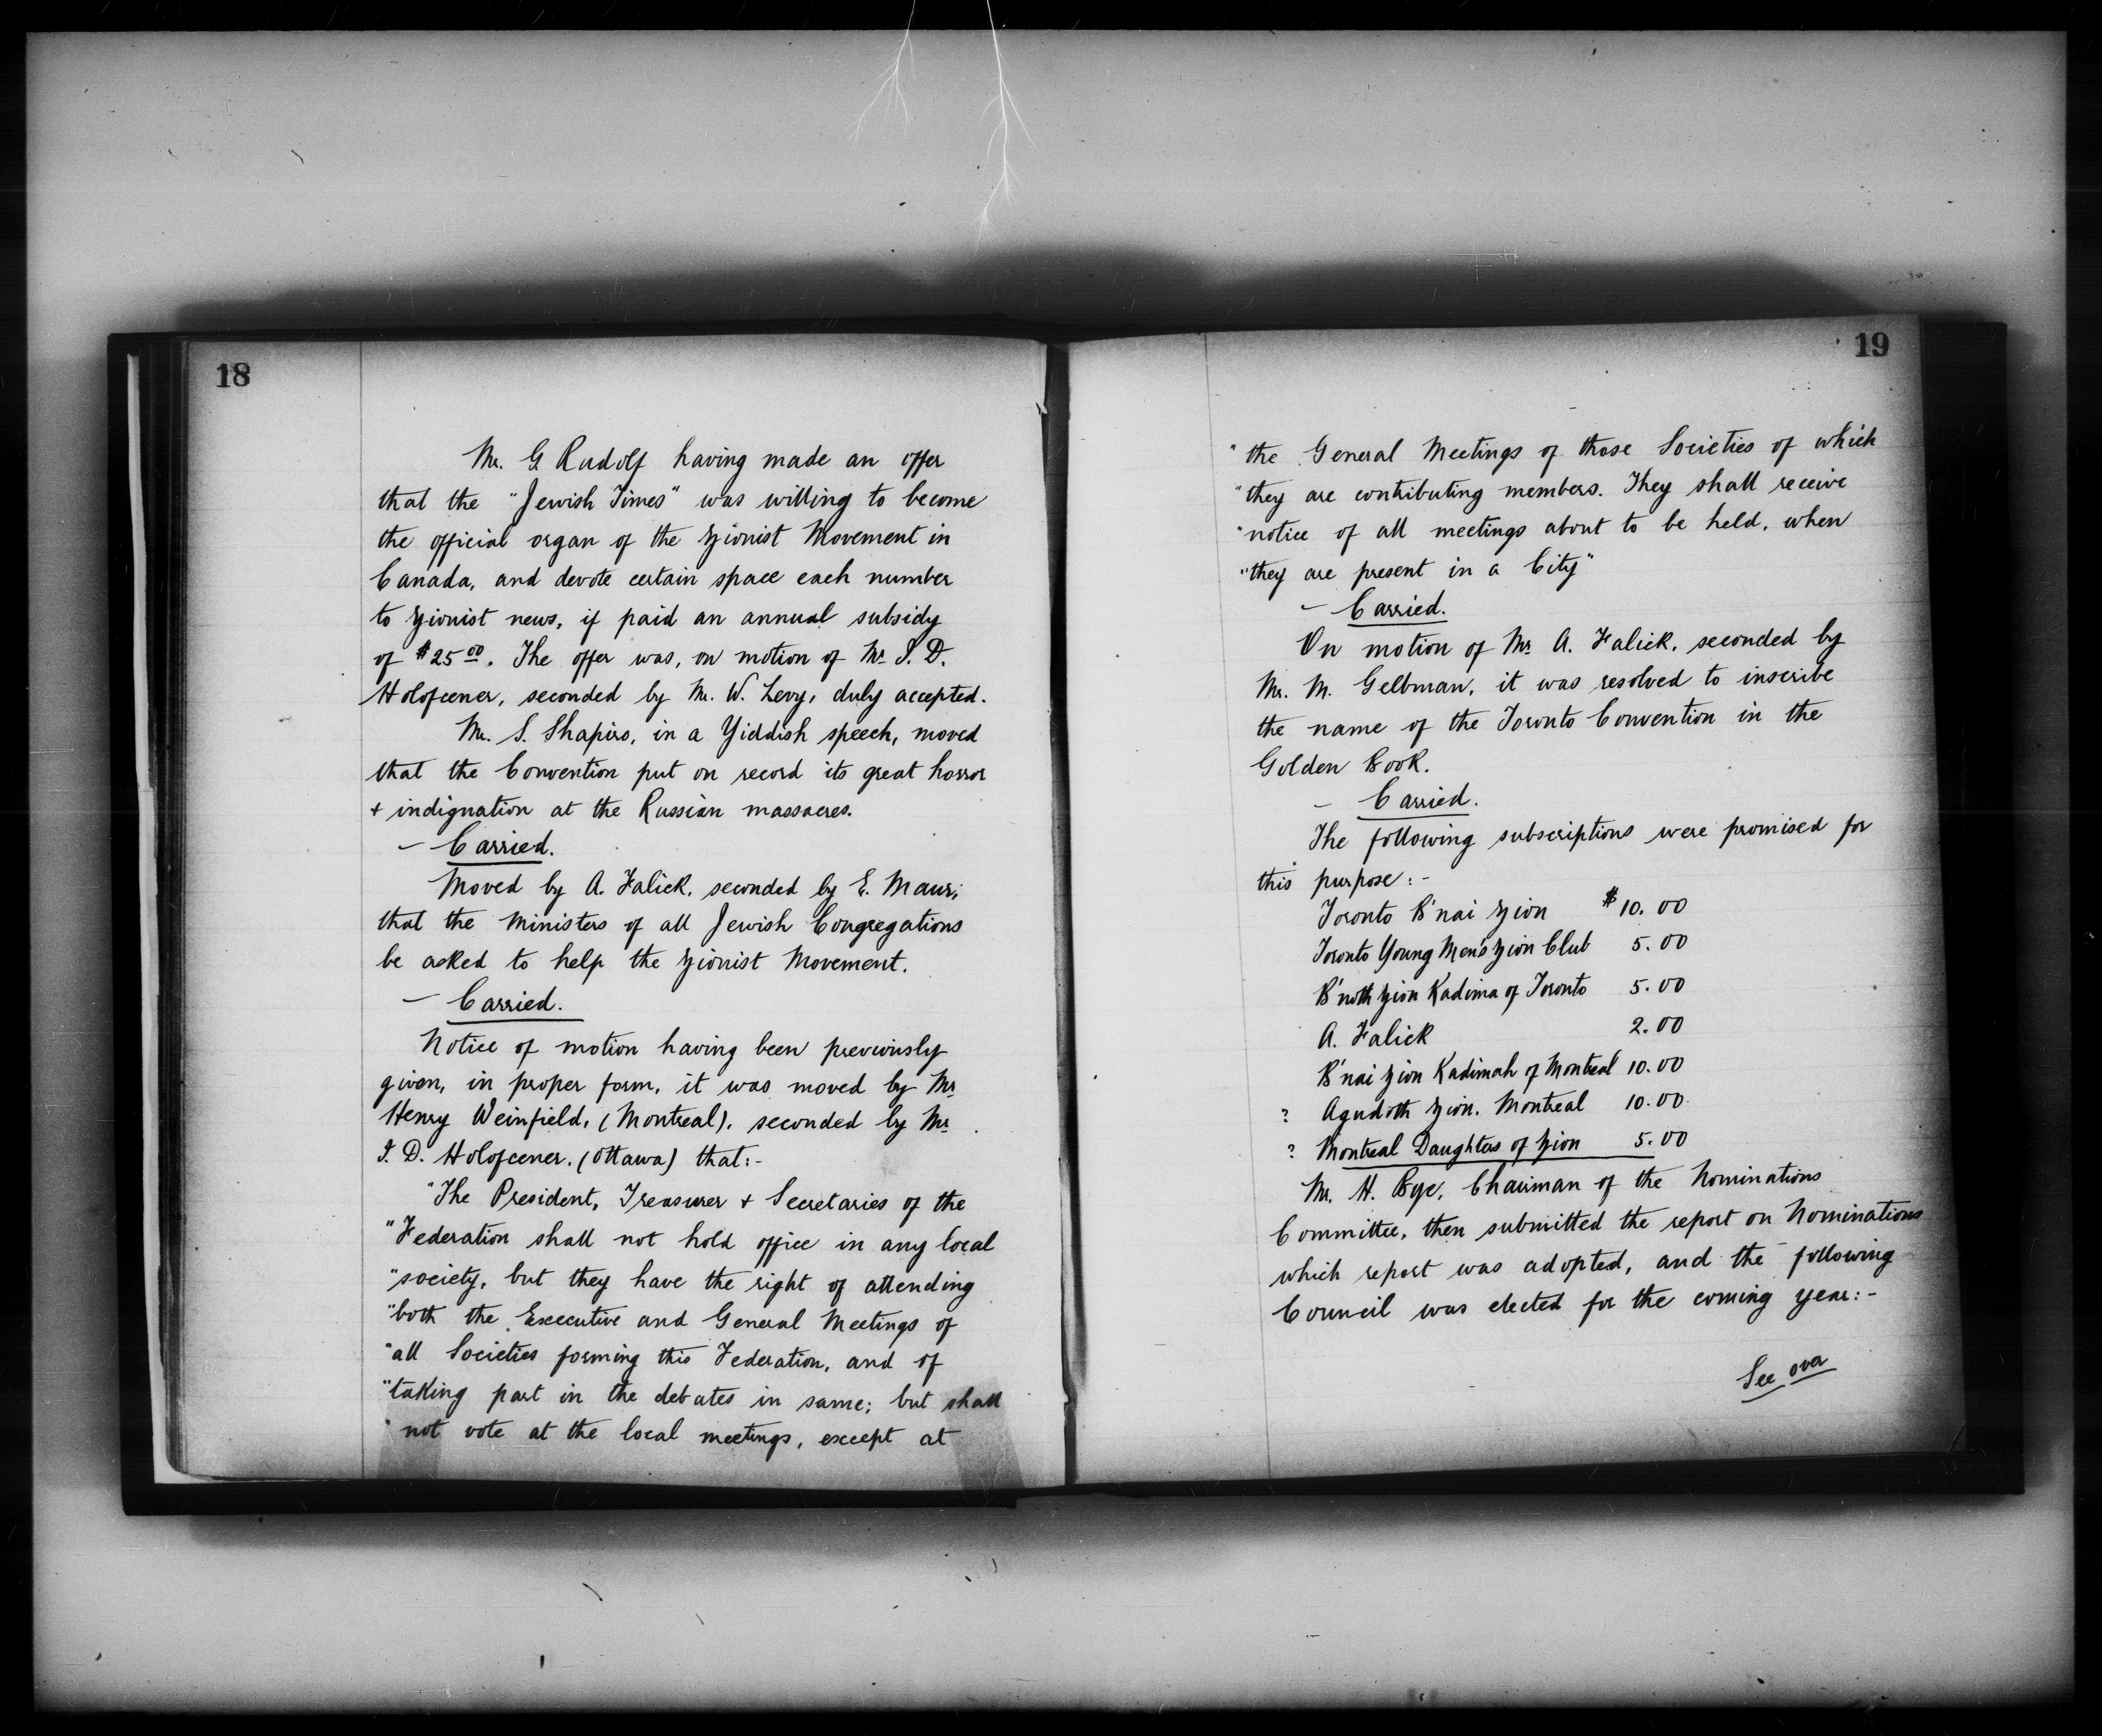 18
Mr. G. Rudolf having made an offer
that the "Jewish Times" was willing to become
the official organ of the Zionist Movement in
Canada, and devote certain space each number
to Zionist news, if paid an annual subsidy
of $25 00. The offer was, on motion of Mr. I. D.
Holofcener, seconded by Mr. W. Levy, duly accepted.
Mr. S. Shapiro, in a Yiddish speech, moved
that the Convention put on record its great horror
+ indignation at the Russian massacres.
- Carried.
Moved by A. Falick, seconded by E. Maur;
that the Ministers of all Jewish Congregations
be asked to help the Zionist Movement.
- Carried.
Notice of motion having been previously
given, in proper form, it was moved by Mr.
Henry Weinfield, (Montreal), seconded by Mr.
I. D. Holofcener. (Ottawa) that:-
"The President, Treasurer + Secretaries of the
"Federation shall not hold office in any local
"society, but they have the right of attending
"both the Executive and General Meetings of
"all Societies forming this Federation, and of
"taking part in the debates in same; but shall
" not vote at the local meetings, except at
19
" the General Meetings of those Societies of which
"they are contributing members. They shall receive
"notice of all meetings about to be held, when
"they are present in a City"
- Carried.
On motion of Mr. A. Falick, seconded by
Mr. M. Gelbman, it was resolved to inscribe
the name of the Toronto Convention in the
Golden Book.
- Carried.
The following subscriptions were promised for
this purpose:-
Toronto B'nai Zion $10.00
Toronto Young Men's Zion Club 5.00
B'noth Zion Kadima of Toronto 5.00
A. Falick 2.00
B'nai Zion Kadimah of Montreal 10.00
? Agudoth Zion. Montreal 10.00
? Montreal Daughters of Zion 5.00
Mr. H. Bye, Chairman of the Nominations
Committee, then submitted the report on Nominations
which report was adopted, and the following
Council was elected for the coming year:-
See over